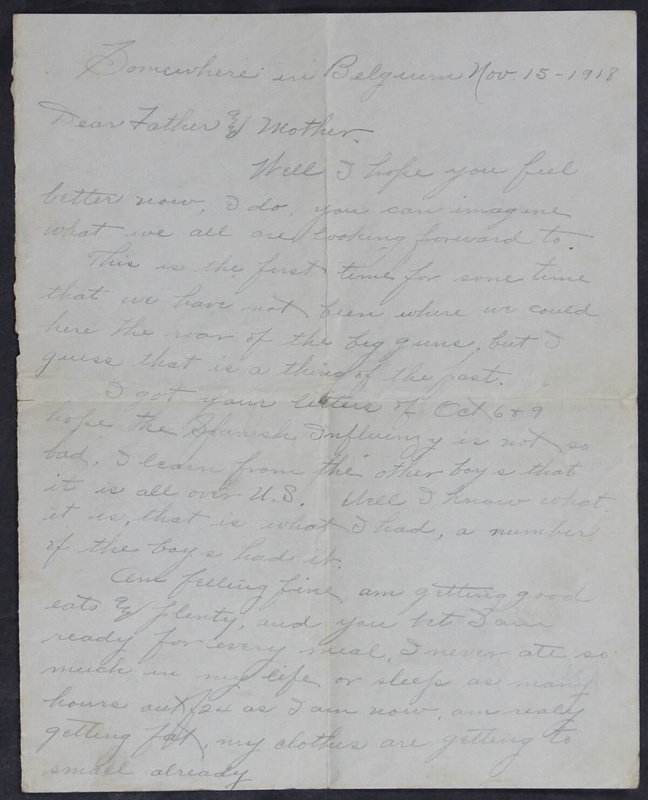 Somewhere in Belgium Nov. 15-1918
Dear Father & Mother.
Well I hope you feel
better now, I do, you can imagine
what we all are looking forward to.
This is the first time for some time
that we have not been where we could
here the roar of the big guns, but I
guess that is a thing of the past.
I got your letters of Oct 6 & 9
hope the Spanish Influenzy is not so
bad. I learn from the other boys that
it is all over U.S. Well I know what
it is, that is what I had, a number
of the boys had it.
Am feeling fine am getting good
eats & plenty, and you bet I am
ready for every meal, I never ate so
much in my life or sleep as many
hours out 24 as I am now, am realy
getting fat, my clothes are getting to
small already